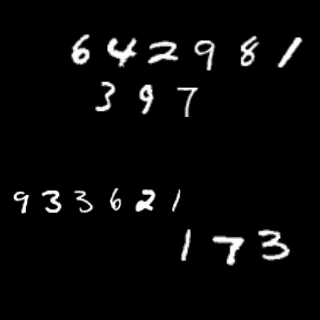 642981
397
933621
173